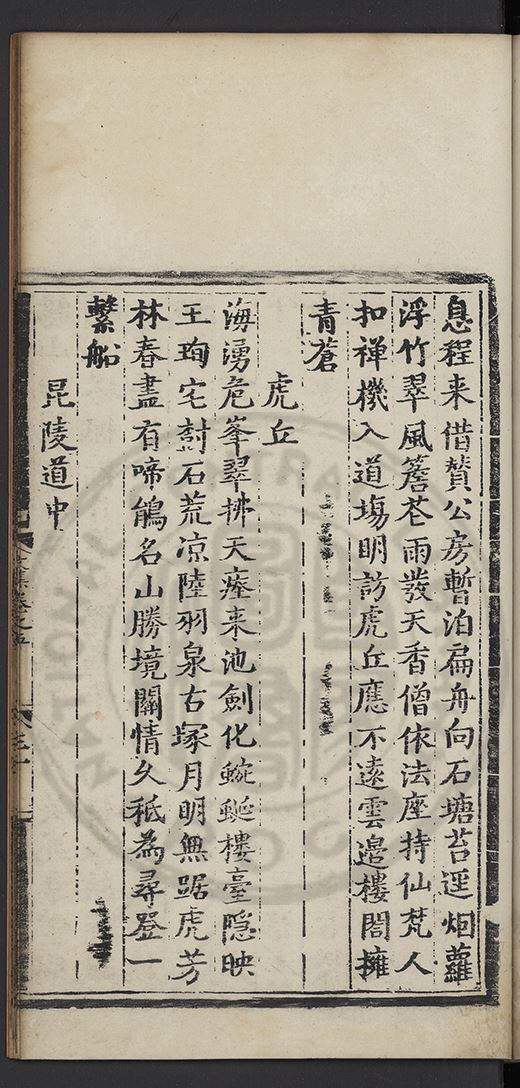 息程来借賛公房暫泊扁舟向石塘苔逕烟蘿
浮竹翠風簷花雨發天香僧依法座持仙梵人
扣禅機入道塲明訪虎丘應不遠雲邉樓閣擁
青蒼
虎丘
海湧危峯翠拂天瘞来池劍化蜿蜒樓臺隠映
王珣宅討石荒凉陸羽泉古塚月明無踞虎芳
林春盡有啼鵑名山勝境關情久秪為尋登一
繋船
昆陵道中